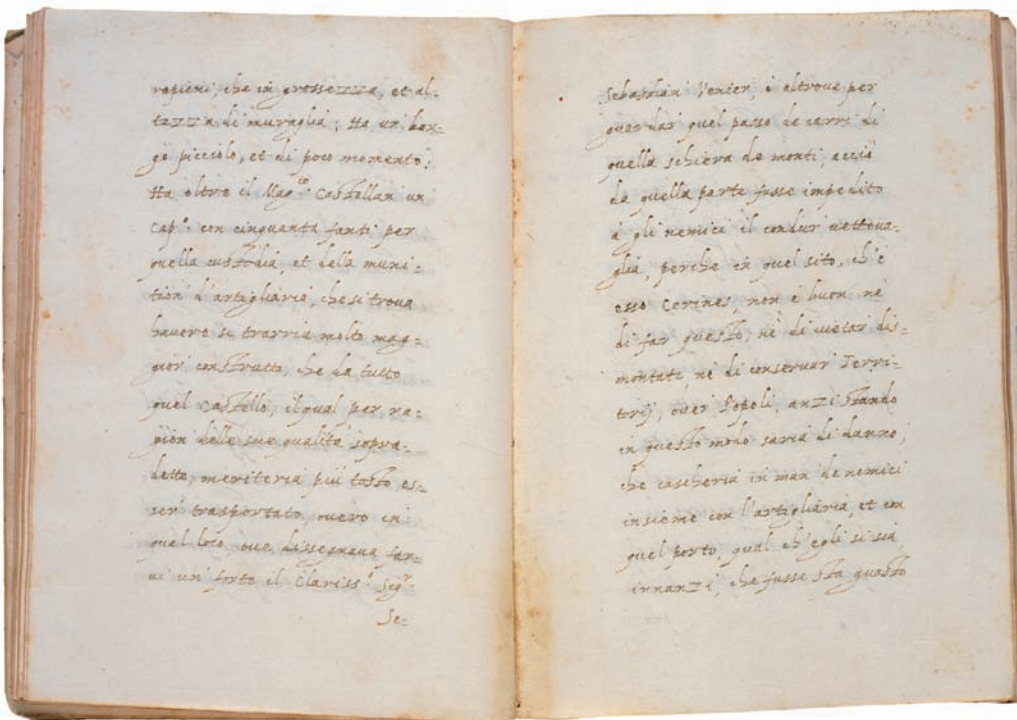 ropieni, che in grossezza, et al-
tezza di muraglia; Ha un bor-
go picciolo, et di poco momento;
Ha oltre il Mag.co Castellan un
Cap.o con cinquanta fanti per
quella custodia, et della muni-
tion d'artigliaria, che si trova
havere si trarria molto mag-
gior construtto, che da tutto
quel Castello, il qual per ra-
gion delle sue qualità sopra-
dette, meriteria più tosto es-
ser trasportato, overo in
quel loco ove dissegnava far-
vi un forte il Clariss.o Sig.r
Se-
Sebastian Venier, i altrove per
guardar quel passo de carri di
quella schiera de monti, acciò
da quella parte fusse impedito
à gli nemici il condur vettova-
glia, perche in quel sito, ch'è
esso Cerines, non è buon nè
di far questo, nè di vietar dis-
montati, nè di conservar Terri-
torij, over Popoli, anzi stando
in questo modo saria di danno,
che cascheria in man de nemici
insieme con l'artigliaria, et con
quel porto, qual ch'egli si sia
innanzi, che fusse sta guasto